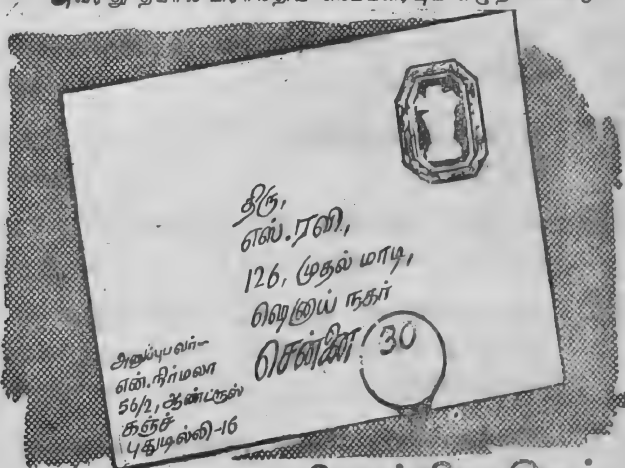 திரு,
எஸ். ரவி,
126, முதல் மாடி,
ஷெனுய் நகர்
சென்னை 30
அனுப்புபவர்—
என். நிர்மலா
56/2, ஆண்ட்ரூஸ்
கஞ்ச்
புதுடில்லி-16